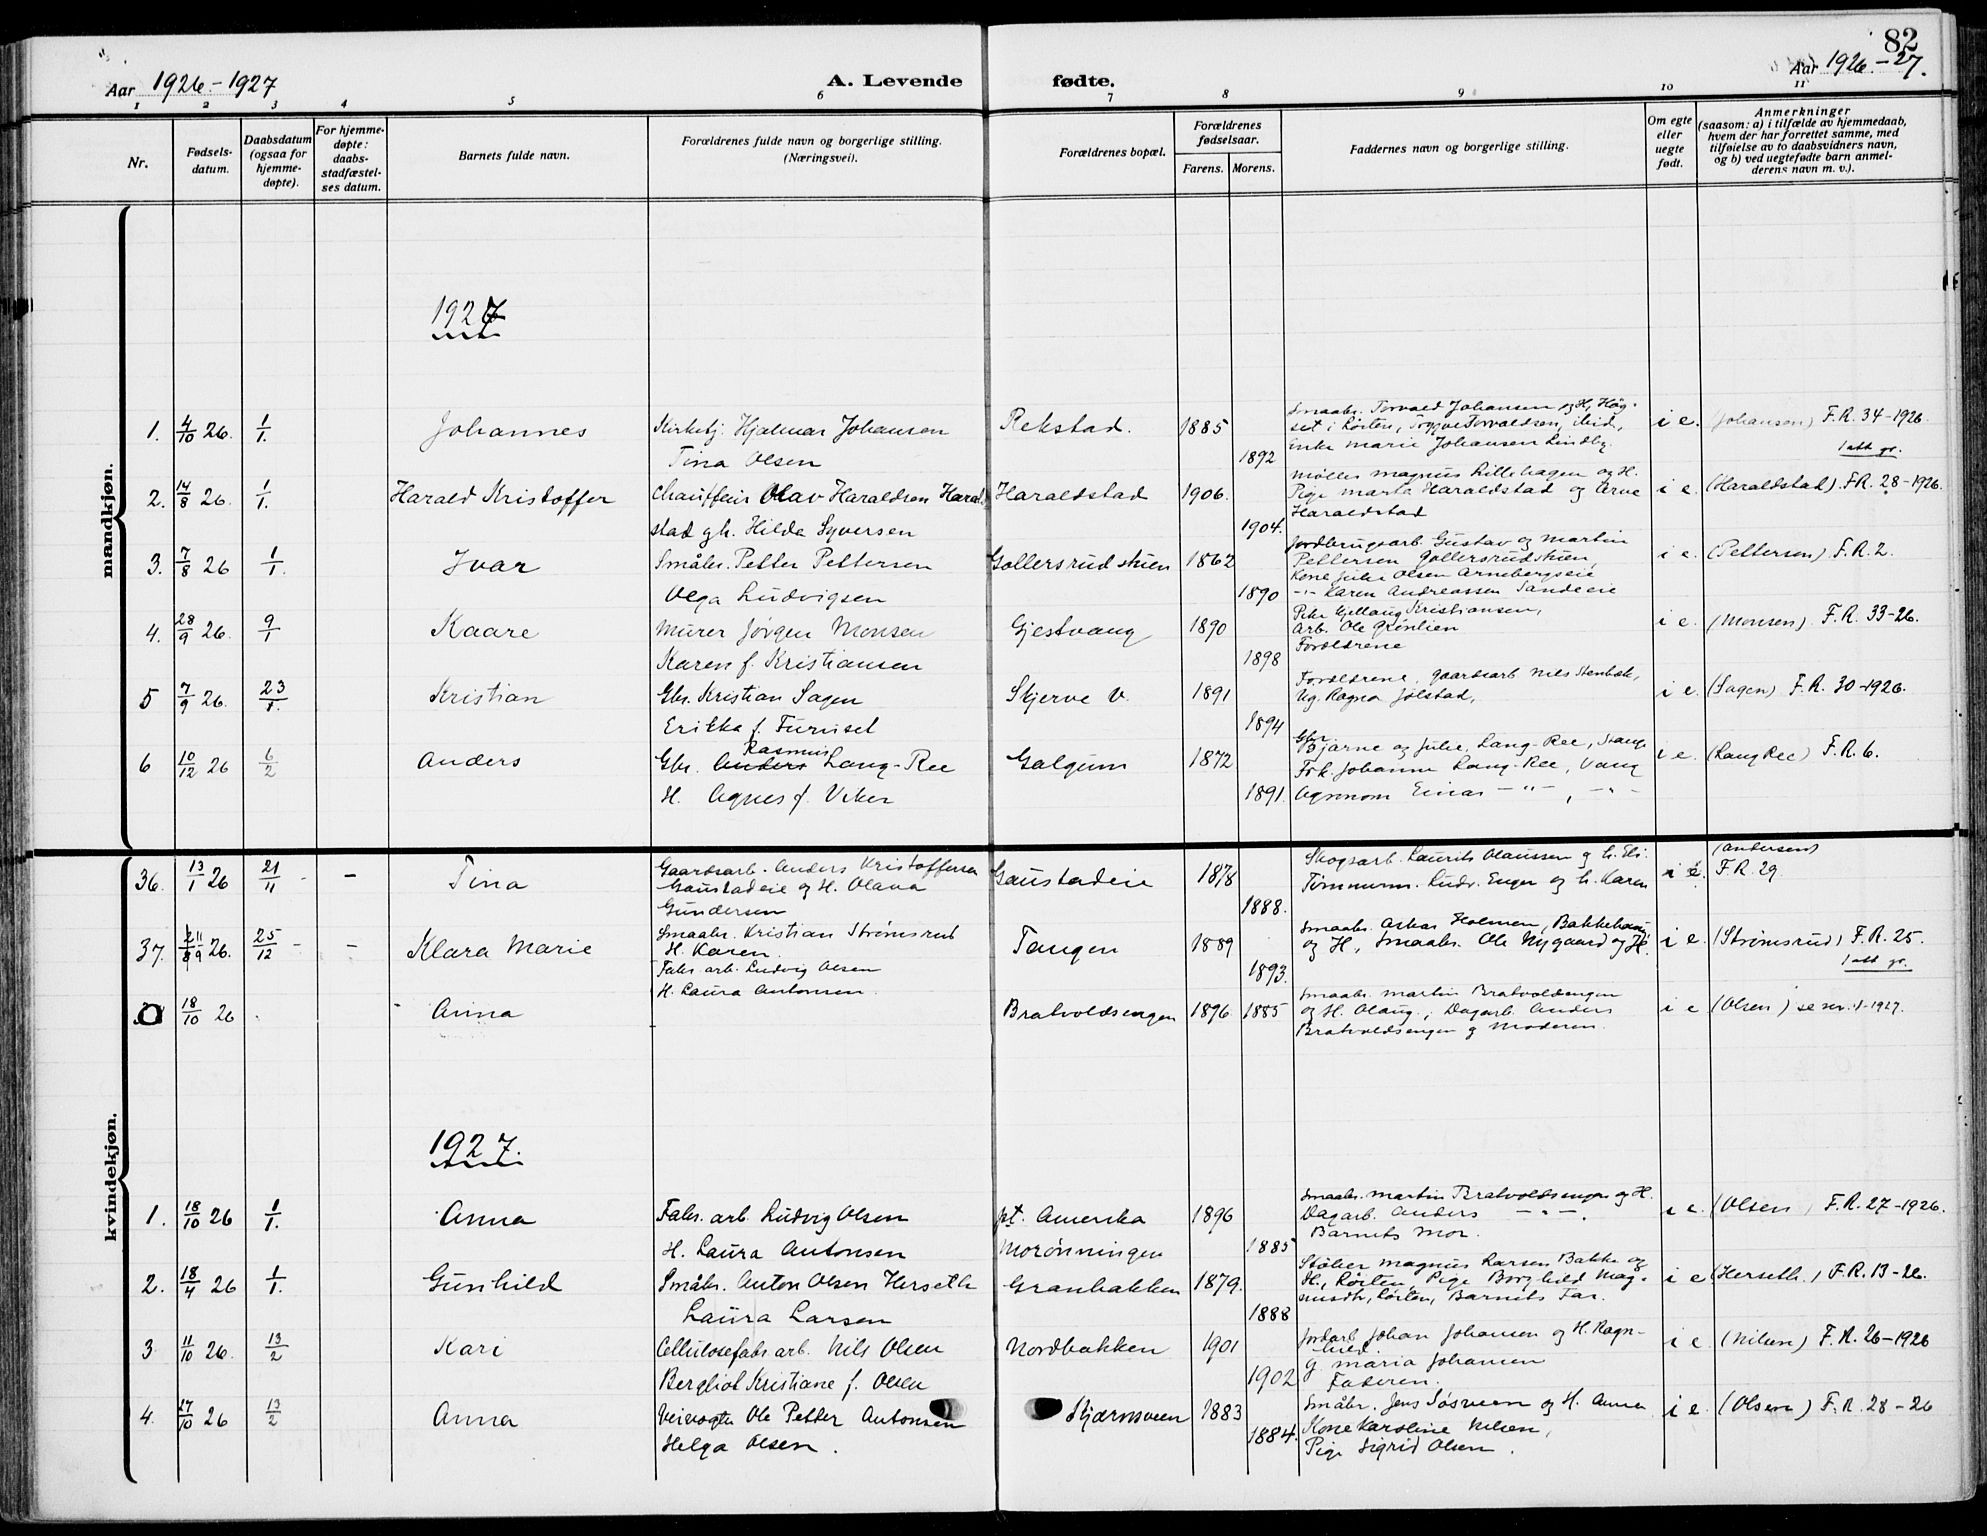 82
Aar 1926-1927 A. Levende fødte. Aar 1926-27.
1 2 3 4 5 6 7 8 9 10 11
Nr.
Fødsels-
datum.
Daabsdatum
(ogsaa for
hjemme-
døpte).
For hjemme-
døpte:
daabs-
stadfæstel-
ses datum.
Barnets fulde navn.
Forældrenes fulde navn og borgerlige stilling.
(Næringsvei).
Forældrenes bopæl.
Forældrenes
fødselsaar.
Farens. Morens.
Faddernes navn og borgerlige stilling.
Om egte
eller
uegte
født.
Anmerkninger
(saasom: a) i tilfælde av hjemmedaab,
hvem der har forrettet samme, med
tilføielse av to daabsvidners navn,
og b) ved uegtefødte barn anmel-
derens navn m. v.).
mandkjøn.
1927
1. 4/10 26. 1/1. Johannes Kirketj. Hjalmar Johansen Rekstad. 1885 i e. (Johansen) F.R. 34-1926.
Tina Olsen 1892
Smaabr. Torvald Johansen og H, Høg-
set i Lørten, Torvaldsen, ibid,
Enke Marie Johansen Lindby.
1 att gr.
2. 14/8 26. 1/1. Harald Kristoffer Chauffeur Olav Haraldsen Harald Haraldstad 1906. i e. (Haraldstad). F.R. 28-1926.
stad gh. Hilda Syversen 1904.
Møller Magnus Lillehagen og H.
Pige Marta Haraldstad og Arve
Haraldstad
3. 7/8 26 1/1. Ivar Småbr. Petter Pettersen Gollersrudstuen 1862 i e. (Pettersen) F.R. 2.
Olga Ludvigsen 1890
Jordbrugsarb. Gustav og Martin
Pettersen Gollersrudstuen,
Kone Julie Olsen Arnebergseie
-"- Karen Andreassen Sandeie
4. 28/9 26. 9/1 Kaare Murer Jørgen Monsen Gjestvang 1890 i e. (Monsen). F.R. 33-26.
Karen f. Kristiansen 1898
Kristiansen,
Arb. Ole Grønlien
Forældrene
5 7/9 26. 23/1. Kristian Gbr. Kristian Sagen Skjerve V. 1891 i e. (Sagen) F.R. 30-1926.
Erikka f. Furuset 1894
Forældrene, gaardsarb Nils Stenbæk,
Ug. Ragna Jølstad,
6 10/12 26 6/2 Anders Gbr. Anders Rasmus Lang-Ree Galgum 1872 i e. (Lang Ree) F.R. 6.
H. Agnes f. Veker 1891.
Gbr.
Bjarne og Julie, Lang-Ree, Stange
Frk. Johanne Lang-Ree, Vang
Agronom Einar -"-, -"-
kvindekjøn.
36. 13/1 26 21/11 - Tina Gaardsarb. Anders Kristoffersen Gaustadeie 1878 i e. (Andersen)
Gaustadeie og H. Olava F.R. 29.
Gundersen 1888.
Skogsarb. Laurits Olaussen og h. Eli.
Tømmerm. Ludv. Enger og h. Karen
37. 11/9 26. 25/12 - - Klara Marie Smaabr. Kristian Strømsrud Tangen 1889 i e. (Strømsrud) F.R. 25.
H. Karen. 1893.
Smaabr. Askar Holmen, Bakkehaug
og H, Smaabr. Ole Nygaard og H.
1 att gr.
O 18/10 26 Anna Fabr. arb. Ludvig Olsen Bratvoldsengen 1896 1885 i e (Olsen) se nr. 1-1927.
H. Laura Antonsen
Smaabr. Martin Bratvoldsengen
og H. Olaug, Dagarb. Anders
Bratvoldsengen og Moderen.
1927.
1. 18/10 26 1/1. Anna Fabr. arb. Ludvig Olsen pt. Amerika 1896 i e. (Olsen) F.R. 27-1926.
H. Laura Antonsen Morønningen 1885
Smaabr. Martin Bratvoldsengen og H.
Dagarb. Anders -"-.
Barnets Mor.
2. 18/4 26 1/1. Gunhild Småbr. Anton Olsen Herseth Granbakken 1879. i e (Herseth.) F.R. 13-26.
Laura Larsen 1888
Støber Magnus Larsen Bakke og
H, Lørten, Pige Borghild Mag-
nusdtr, Lørten, Barnets Far.
3 11/10 26. 13/2 Kari Cellulosefabr arb. Nils Olsen Nordbakken 1901 i e. (Nilsen) F.R. 26-1926
Bergliot Kristiane f. Olsen 1902
Jordarb Johan Johansen og H. Ragn-
hild.
g. Maria Johansen
Faderen.
4. 27/10 26 13/2 Anna Veivogter Ole Petter Antonsen Skjærnsveen 1883 i e. (Olsen) F.R. 28-26
Helga Olsen. 1884.
Småbr. Jens Søsveen og H. Anna
Kone Karoline Nilsen,
Pige Sigrid Olsen.